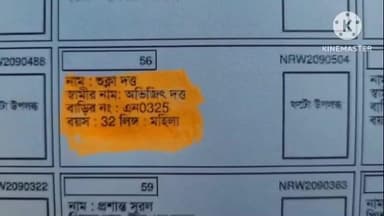 KINEMASTER
RW2090488
56
NRW2090504
নাম : শুক্লা দত্ত
স্বামীর নাম: অভিজিৎ দত্ত
বাড়ির নং : এন0325
বয়স : 32 লিঙ্গ : মহিলা
টো উপলব্ধ
ফটো উপলব্ধ
W2090322
59
NRW2090363
নাম : প্রশান্ত সুরল